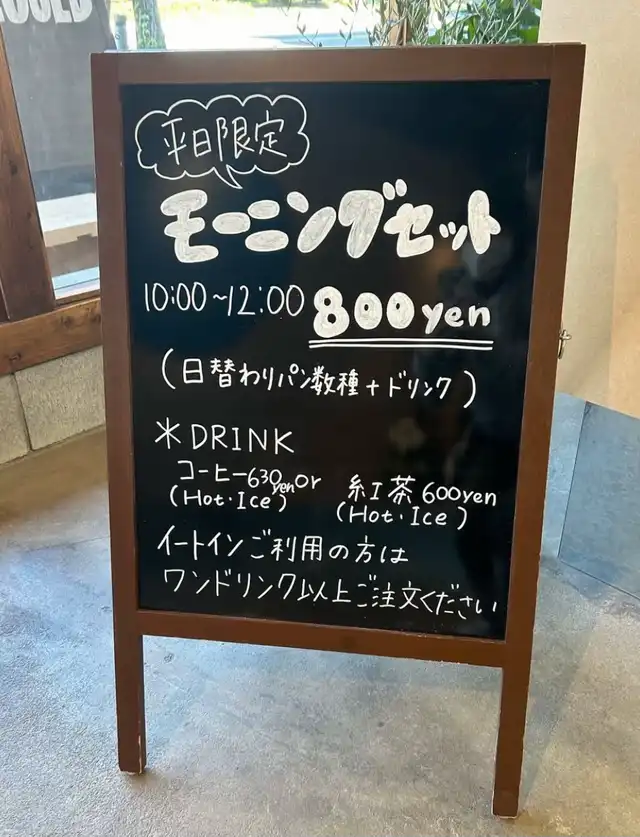 平日限定
モーニングセット
10:00~12:00 800yen
(日替わりパン数種+ドリンク)
*DRINK
コーヒー630yen or 紅茶 600yen
(Hot・Ice) (Hot・Ice)
イートインご利用の方は
ワンドリンク以上ご注文ください